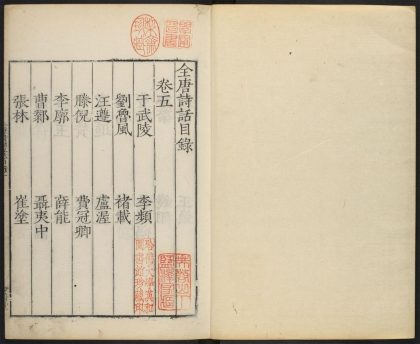 全唐詩話目錄
卷五
于武陵 李頻
劉魯風 褚載
汪遵 盧渥
滕倪 費冠卿
李廓 薛能
曹鄴 聶夷中
張林 崔塗